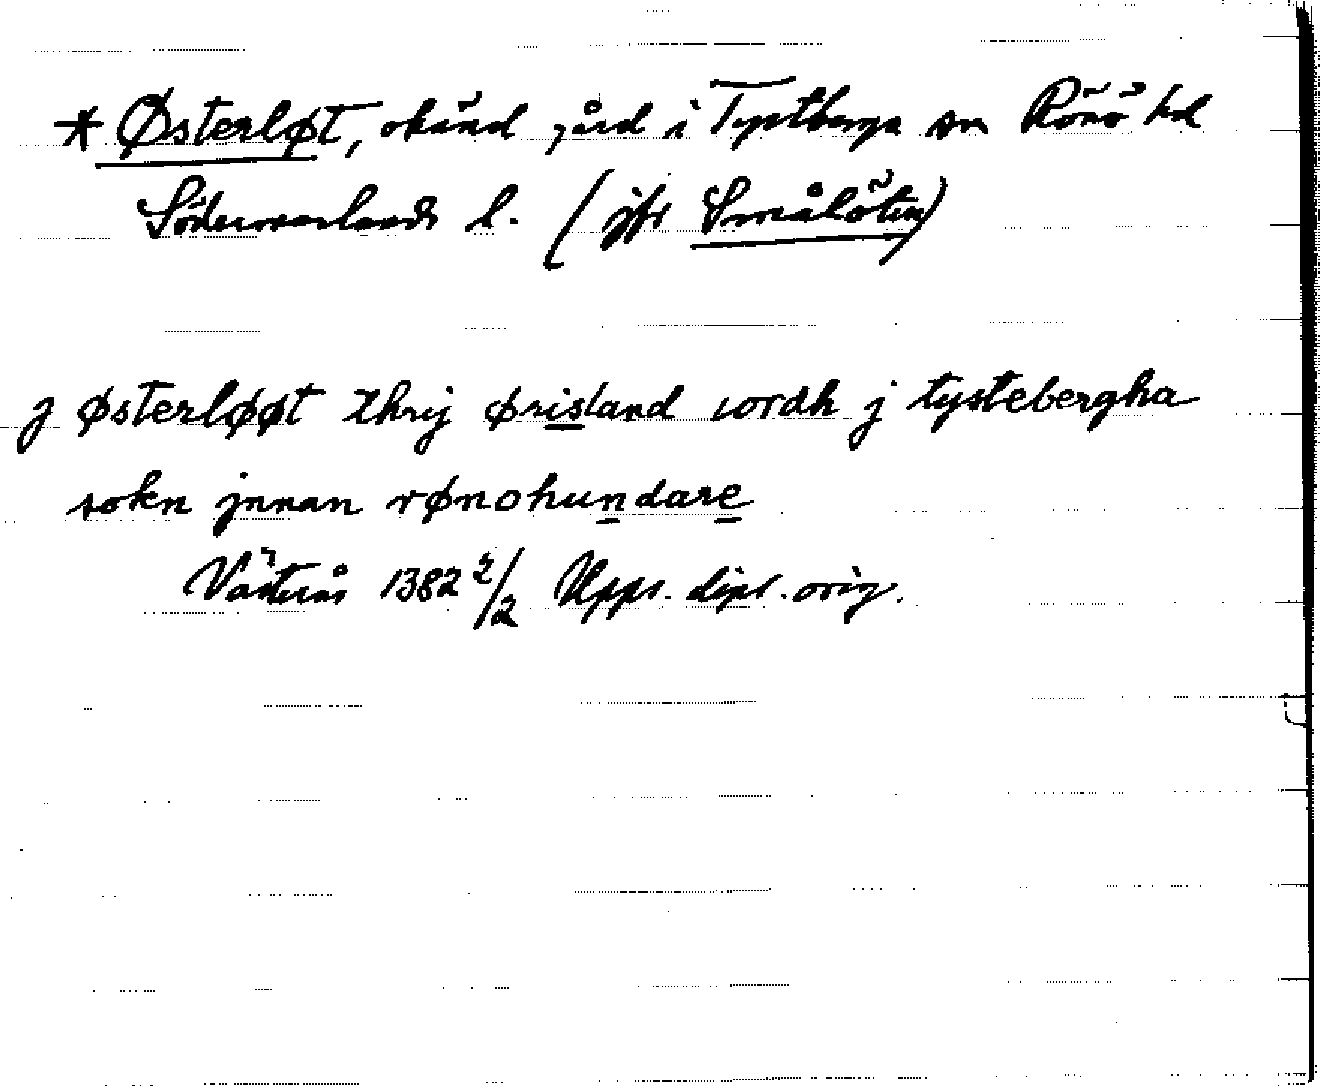 * Østerløt, okänd gård i Tystberga sn Rönö hd
Södermanlands l. (jfr Smålöten)
j østerløøt thrij ørisland iordh j tystebergha
sokn jnnan rønohundare
Västerås 1382 2/2 Upps. dipl. orig.